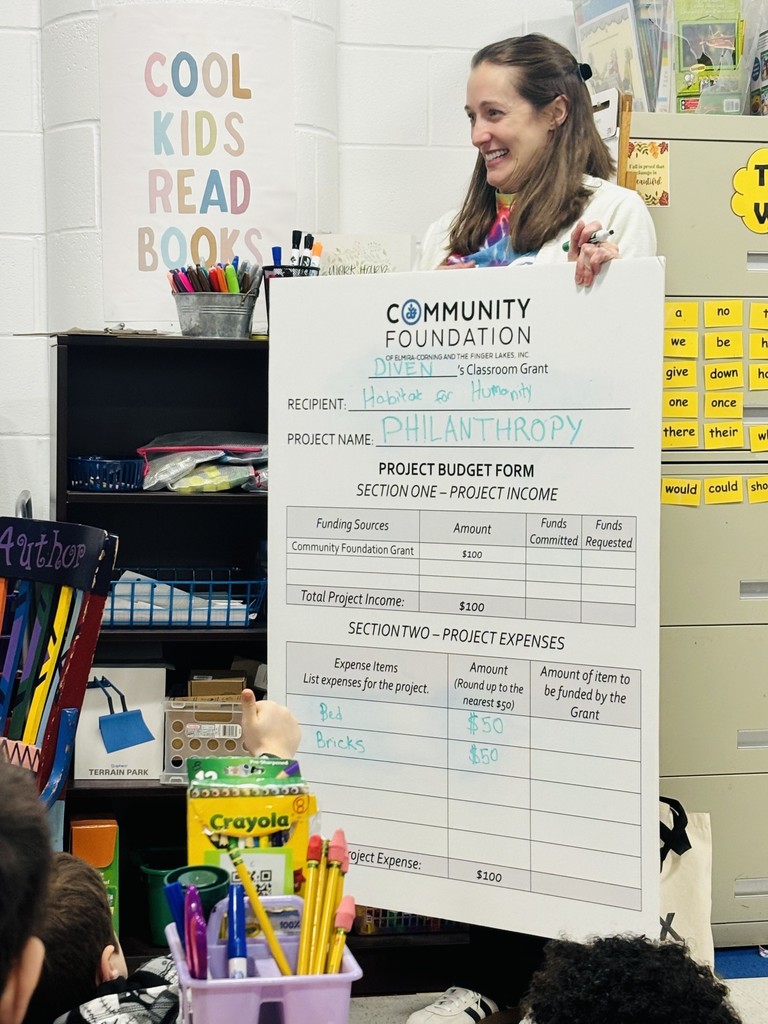 COOL
KIDS
READ
BOOKS
COMMUNITY
FOUNDATION
OF ELMIRA-CORNING AND THE FINGER LAKES, INC.
DIVEN 's Classroom Grant
RECIPIENT: Habitat for Humanity
PROJECT NAME: PHILANTHROPY
PROJECT BUDGET FORM
SECTION ONE – PROJECT INCOME
Funding Sources Amount Funds Committed Funds Requested
Community Foundation Grant $100
Total Project Income: $100
SECTION TWO – PROJECT EXPENSES
Expense Items Amount Amount of item to
List expenses for the project. (Round up to the be funded by the
nearest $50) Grant
Bed $50
Bricks $50
roject Expense: $100
a no
we be
give down
one once
there their
would could
Author
TERRAIN PARK
12 Pre-Sharpened
Crayola
100X
X